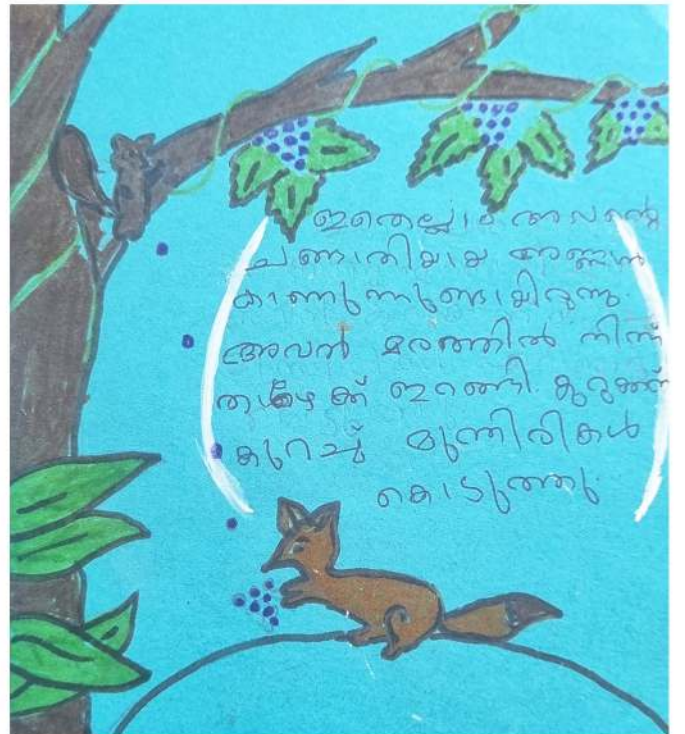 ഇതെല്ലാം അവന്റെ
ചങ്ങാതിയായ അണ്ണാൻ
കാണുന്നുണ്ടായിരുന്നു.
അവൻ മരത്തിൽ നിന്ന്
താഴേക്ക് ഇറങ്ങി. കുറുക്കന്
കുറച്ച് മുന്തിരികൾ
കൊടുത്തു.